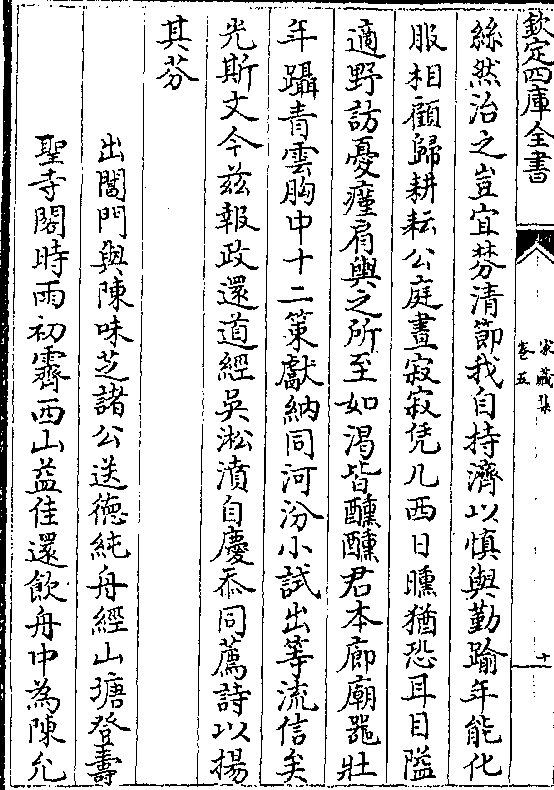 欽定四庫全書
家藏集
卷五
十
絲然治之豈宜棼清節我自持濟以慎與勤踰年能化
服相顧歸耕耘公庭晝寂寂凭几西日曛猶恐耳目隘
適野訪憂瘽肩輿之所至如渴皆醺醺君本廊廟器壯
年躡青雲胸中十二策獻納同河汾小試出等流信矣
光斯文今兹報政還道經吳淞濆自慶忝同薦詩以揚
其芬
出閶門與陳味芝諸公送德純舟經山塘登壽
聖寺閣時雨初霽西山益佳還飲舟中為陳允